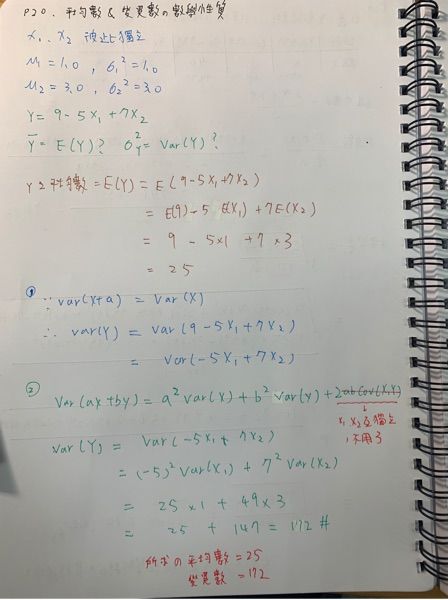 P20. 平均數 & 變異數の數學性質
X₁、X₂ 彼此獨立
μ₁=1.0 , σ₁²=1.0
μ₂=3.0 , σ₂²=3.0
Y=9-5X₁+7X₂
Ȳ=E(Y)? σ²Y=Var(Y)?
Y之平均數=E(Y)=E(9-5X₁+7X₂)
=E(9)-5E(X₁)+7E(X₂)
=9-5×1+7×3
=25
① ∵ var(X+a)=Var(X)
∴ var(Y)=Var(9-5X₁+7X₂)
=Var(-5X₁+7X₂)
② Var(ax+by)=a²Var(X)+b²Var(Y)+2abCov(X,Y)
X₁X₂互獨立
,不用了
Var(Y)=Var(-5X₁+7X₂)
=(-5)²Var(X₁)+7²Var(X₂)
=25×1+49×3
=25+147=172 #
所求の平均數=25
變異數=172